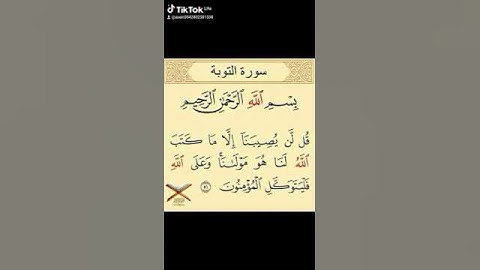 TikTok Lite
سورة التوبة
بِسْمِ اللَّهِ الرَّحْمَٰنِ الرَّحِيمِ
قُل لَّن يُصِيبَنَا إِلَّا مَا كَتَبَ
اللَّهُ لَنَا هُوَ مَوْلَىٰنَا ۚ وَعَلَى اللَّهِ
فَلْيَتَوَكَّلِ الْمُؤْمِنُونَ ٥١